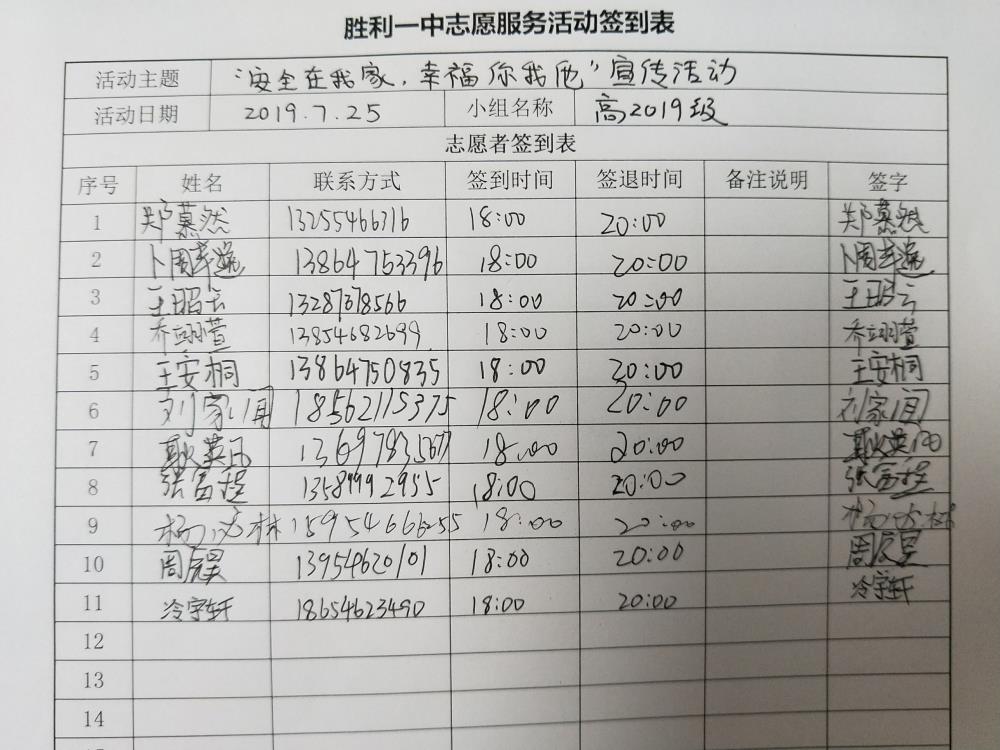 胜利一中志愿服务活动签到表
活动主题 “安全在我家，幸福你我他”宣传活动
活动日期 2019.7.25 小组名称 高2019级
志愿者签到表
序号 姓名 联系方式 签到时间 签退时间 备注说明 签字
1 郑慕然 13255466316 18:00 20:00 郑慕然
2 卜周 13864753396 18:00 20:00 卜周
3 王昭云 13287378566 18:00 20:00 王昭云
4 乔翊萱 13854682699 18:00 20:00 乔翊萱
5 王安桐 13864750835 18:00 20:00 王安桐
6 刘家闻 18562115375 18:00 20:00 刘家闻
7 耿英 18:00 20:00 耿英
8 张富程 18:00 20:00 张富程
9 杨 林 18:00 20:00 杨 林
10 周 13954620101 18:00 20:00 周
11 冷宇轩 18654623490 18:00 20:00 冷宇轩
12
13
14